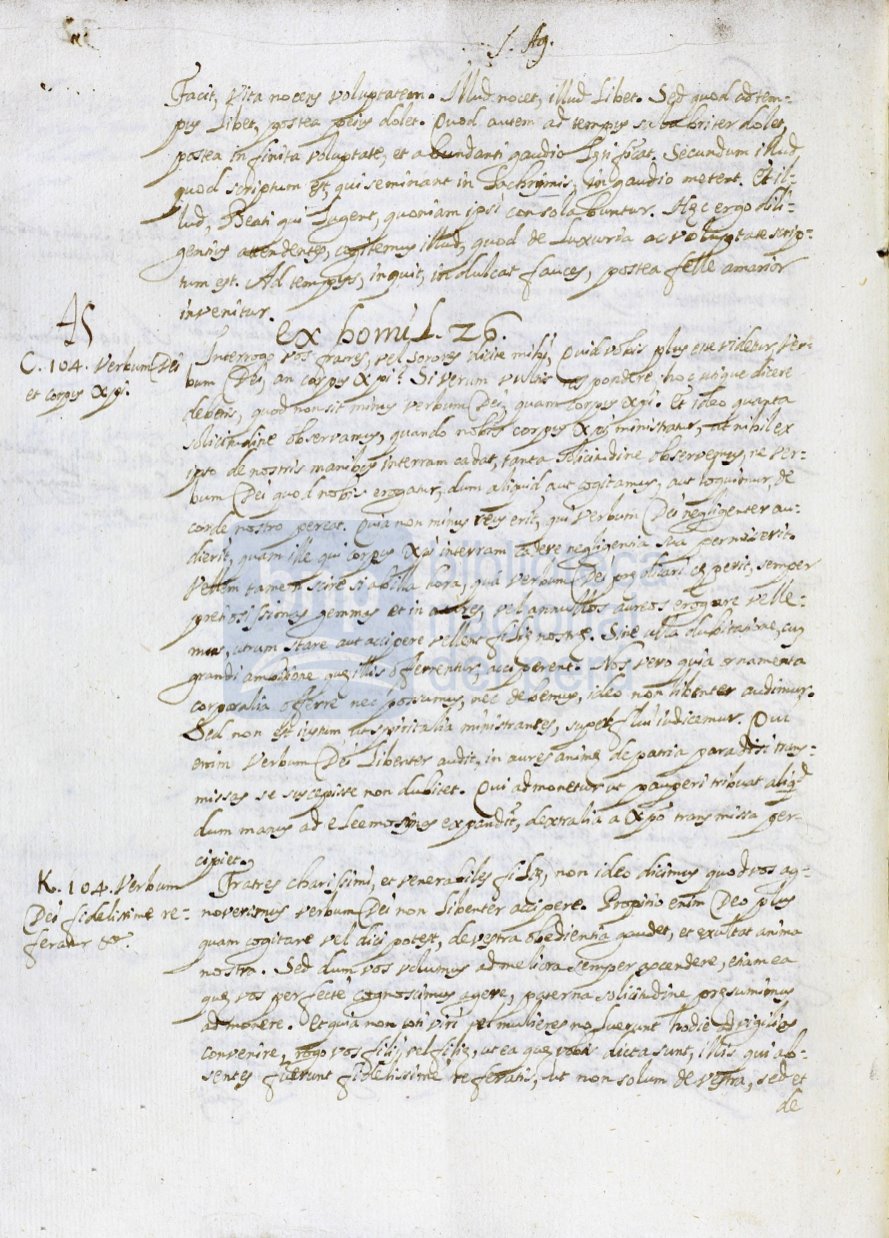 S. Ag.
Facit, vita nocens voluptatem. Illud nocet, illud libet. Sed quod ad tem-
pus libet, postea plus dolet. Quod autem ad tempus salubriter dolet,
postea infinita voluptate, et abundanti gaudio. Secundum illud
quod scriptum est, qui seminant in lachrymis, in gaudio metent. Et il-
lud, Beati qui lugent, quoniam ipsi consolabuntur. Hęc ergo dili-
gentius attendentes, cogitemus illud, quod de luxuria ac voluptate scrip-
tum est. Ad tempus, inquit, indulcat fauces, postea felle amarior
invenitur.
45
ex homil. 26.
C. 104. Verbum Dei
et corpus Xpi.
Interrogo vos fratres, vel sorores dicite mihi, Quid vobis plus esse videtur, ver-
bum Dei, an corpus Xpi? Si verum vultis respondere, hoc utique dicere
debetis, quod non sit minus verbum Dei, quam corpus Xpi. Et ideo quanta
solicitudine observamus, quando nobis corpus Xpi ministratur, ut nihil ex
ipso de nostris manibus in terram cadat, tanta solicitudine observemus, ne ver-
bum Dei quod nobis erogatur, dum aliquid aut cogitamus, aut loquimur, de
corde nostro pereat. Quia non minus reus erit, qui verbum Dei negligenter au-
dierit, quam ille qui corpus Xpi in terram cadere negligentia sua permiserit.
Vellem tamen scire si ab illa hora, qua verbum Dei prędicari cępit, semper
prętiosissimas gemmas et inaures, vel annullos aureos erogare velle-
mus, utrum stare aut accipere vellent filię nostrę. Sine ulla dubitatione, cum
grandi ambitione quę illis offerrentur acciperent. Nos vero quia ornamenta
corporalia offerre nec possumus, nec debemus, ideo non libenter audimur.
Sed non est iustum ut spiritalia ministrantes, superflui iudicemur. Qui
enim verbum Dei libenter audit, in aures animę de patria paradisi trans-
missas se suscepisse non dubitet. Qui admonetur ut pauperi tribuat aliqd
dum manus ad eleemosynas expandit, dextralia a Xpo transmissa per-
cipiet.
K. 104. Verbum
Dei fidelissime re-
feratur &c.
Fratres charissimi, et venerabiles filię, non ideo dicimus quod vos ag-
noverimus verbum Dei non libenter accipere. Propitio enim Deo plus
quam cogitare vel dici potest, de vestra obedientia gaudet, et exultat anima
nostra. Sed dum vos volumus ad meliora semper ascendere, etiam ea
quę vos perfectè cognoscimus agere, paterna solicitudine pręsumimus
admonere. Et quia non toti viri vel mulieres potuerunt hodie ad vigilias
convenire, rogo vos filij, vel filię, ut ea quę vobis dicta sunt, illis qui ab-
sentes fuerunt fidelissimè referatis, ut non solum de vestra, sed et
de
biblioteca
nacional
del perú